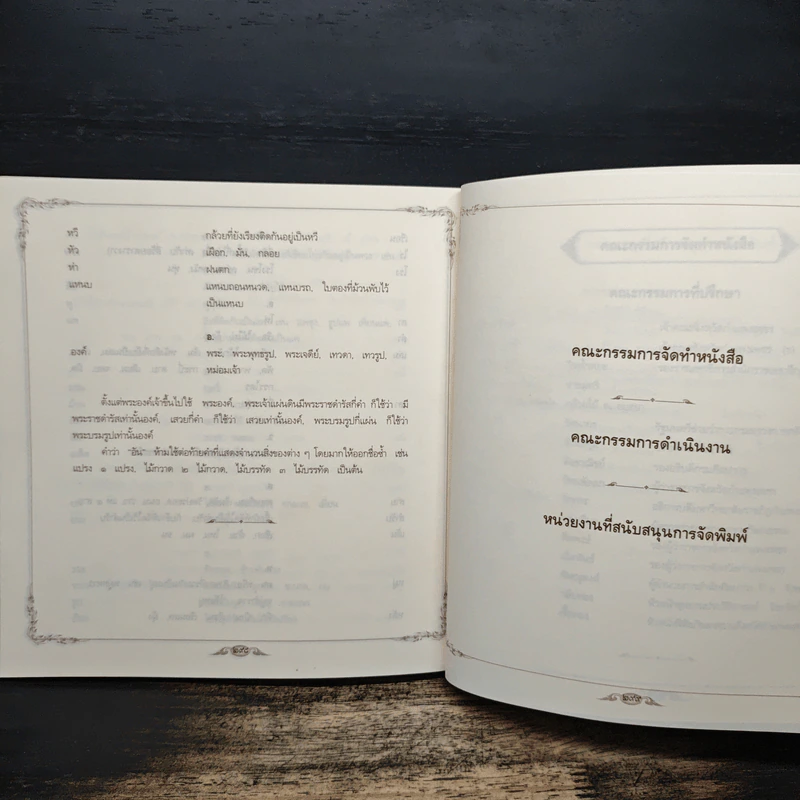 หวี กล้วยที่ยังเรียงติดกันอยู่เป็นหวี
หัว เผือก, มัน, กลอย
ห่า ฝนตก
แหนบ แหนบถอนหนวด, แหนบรถ, ใบตองที่ม้วนพับไว้
เป็นแหนบ
อ.
องค์ พระ, พระพุทธรูป, พระเจดีย์, เทวดา, เทวรูป,
หม่อมเจ้า
ตั้งแต่พระองค์เจ้าขึ้นไปใช้ พระองค์, พระเจ้าแผ่นดินมีพระราชดำรัสกี่คำ ก็ใช้ว่า มี
พระราชดำรัสเท่านั้นองค์, เสวยกี่คำ ก็ใช้ว่า เสวยเท่านั้นองค์, พระบรมรูปกี่แผ่น ก็ใช้ว่า
พระบรมรูปเท่านั้นองค์
คำว่า "อัน" ห้ามใช้ต่อท้ายคำที่แสดงจำนวนสิ่งของต่าง ๆ โดยมากให้ออกชื่อซ้ำ เช่น
แปรง ๑ แปรง, ไม้กวาด ๒ ไม้กวาด, ไม้บรรทัด ๓ ไม้บรรทัด เป็นต้น
๒๙๘
คณะกรรมการจัดทำหนังสือ
คณะกรรมการดำเนินงาน
หน่วยงานที่สนับสนุนการจัดพิมพ์
๒๙๙